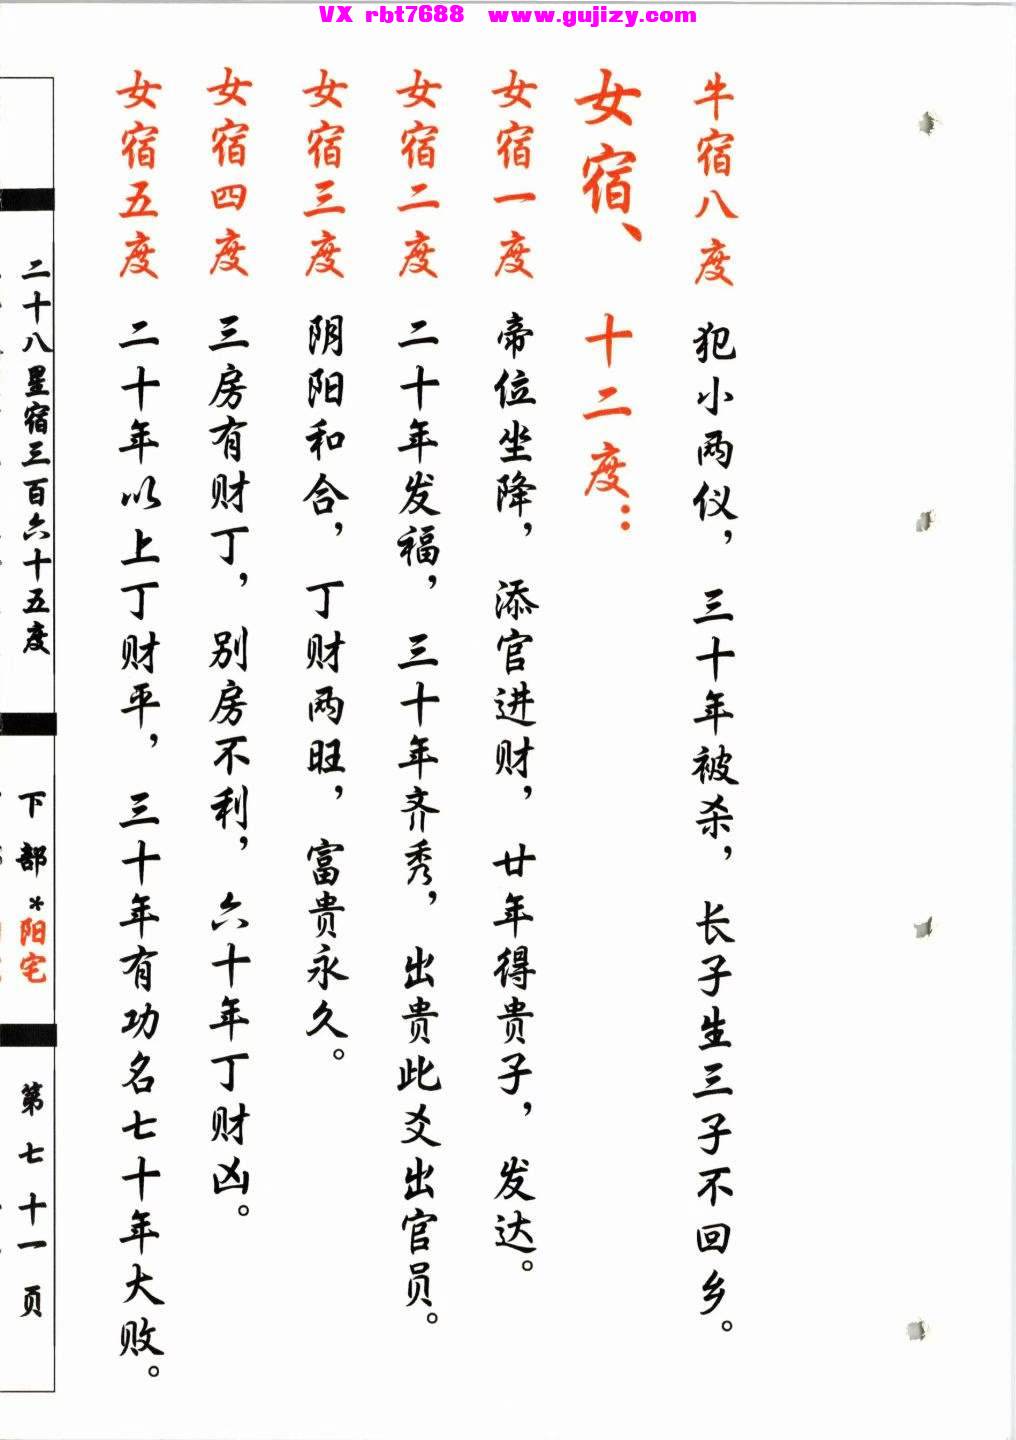 VX rbt7688 www.gujizy.com
牛宿八度 犯小两仪，三十年被杀，长子生三子不回乡。
女宿、十二度：
女宿一度 帝位坐降，添官进财，廿年得贵子，发达。
女宿二度 二十年发福，三十年齐秀，出贵此爻出官员。
女宿三度 阴阳和合，丁财两旺，富贵永久。
女宿四度 三房有财丁，别房不利，六十年丁财凶。
女宿五度 二十年以上丁财平，三十年有功名七十年大败。
二十八星宿三百六十五度 下部*阳宅 第七十一页